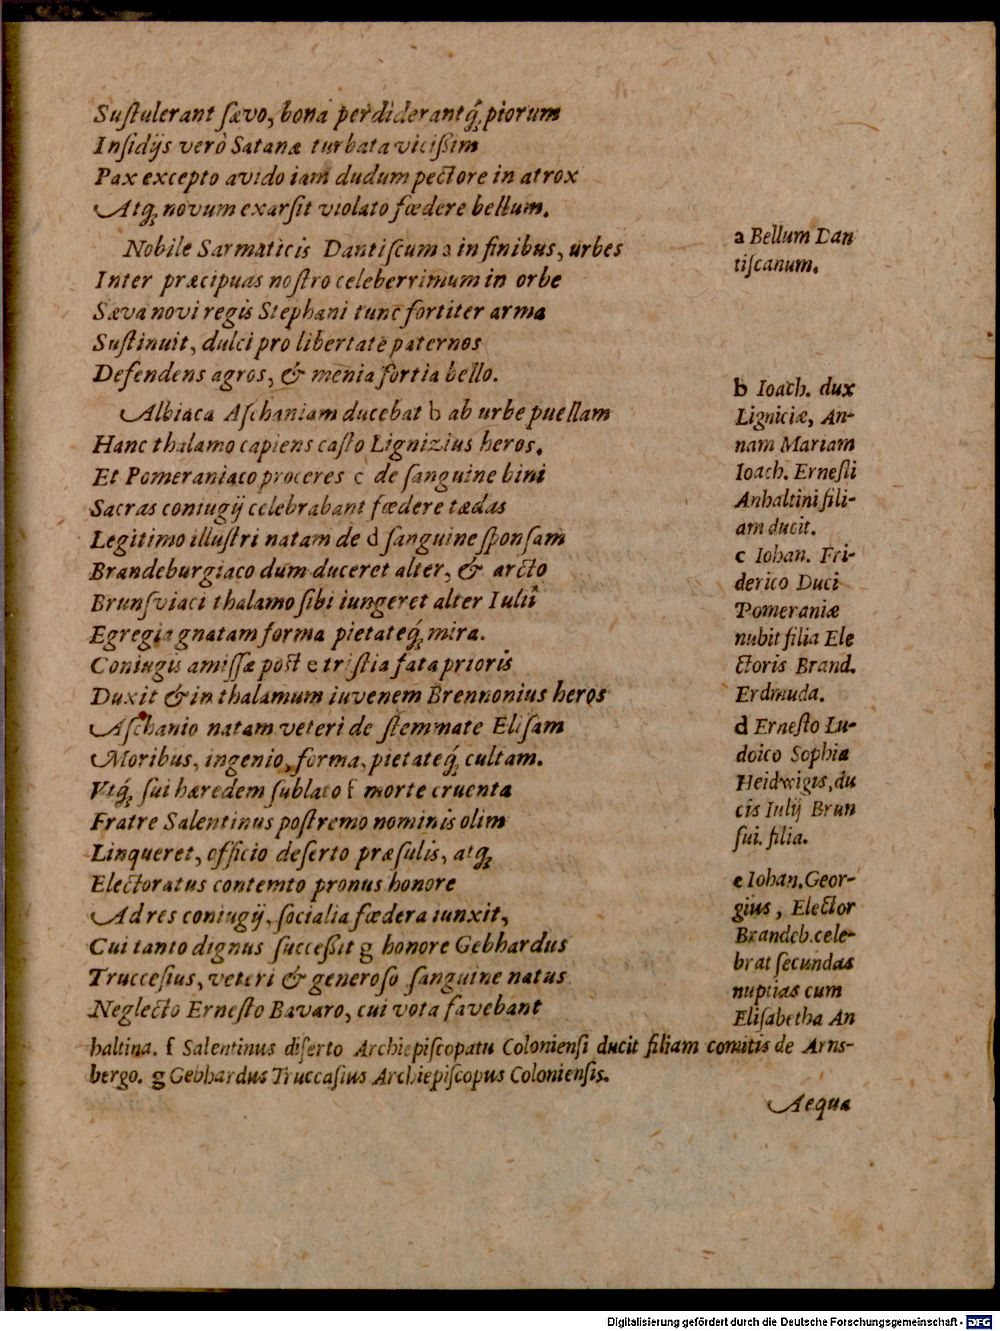 Suſtulerant ſævo, bona perdiderantq́; piorum
Inſidijs verò Satanæ turbata viciſsim
Pax excepto avido iam dudum pectore in atrox
Atq; novum exarſit violato fœdere bellum.
Nobile Sarmaticis Dantiſcum a in finibus, urbes
Inter præcipuas noſtro celeberrimum in orbe
Sæva novi regis Stephani tunc fortiter arma
Suſtinuit, dulci pro libertate paternos
Defendens agros, & menia fortia bello.
Albiaca Aſchaniam ducebat b ab urbe puellam
Hanc thalamo capiens caſto Lignizius heros.
Et Pomeraniaco proceres c de ſanguine bini
Sacras coniugij celebrabant fœdere tædas
Legitimo illuſtri natam de d ſanguine ſponſam
Brandeburgiaco dum duceret alter, & arcto
Brunſviaci thalamo ſibi iungeret alter Iulii
Egregia gnatam forma pietateq́; mira.
Coniugis amiſſæ poſt e triſtia fata prioris
Duxit & in thalamum iuvenem Brennonius heros
Aſchanio natam veteri de ſtemmate Eliſam
Moribus, ingenio, forma, pietateq́; cultam.
Vtq́; ſui hæredem ſublato f morte cruenta
Fratre Salentinus poſtremo nominis olim
Linqueret, officio deſerto præſulis, atq;
Electoratus contemto pronus honore
Ad res coniugij, ſocialia fœdera iunxit,
Cui tanto dignus ſucceſsit g honore Gebhardus
Truccesius, veteri & generoſo ſanguine natus
Neglecto Erneſto Bavaro, cui vota favebant
a Bellum Dan
tiſcanum.
b Ioach. dux
Ligniciæ, An-
nam Mariam
Ioach. Erneſti
Anhaltini fili-
am ducit.
c Iohan. Fri-
derico Duci
Pomeraniæ
nubit filia Ele
ctoris Brand.
Erdmuda.
d Erneſto Lu-
doico Sophia
Heidwigis, du
cis Iulij Brun
ſui. filia.
e Iohan. Geor-
gius, Elector
Brandeb. cele-
brat ſecundas
nuptias cum
Eliſabetha An
haltina. f Salentinus diſerto Archiepiſcopatu Colonienſi ducit filiam comitis de Arns-
bergo. g Gebhardus Truccaſius Archiepiſcopus Colonienſis.
Aequa
Digitalisierung gefördert durch die Deutsche Forschungsgemeinschaft - DFG